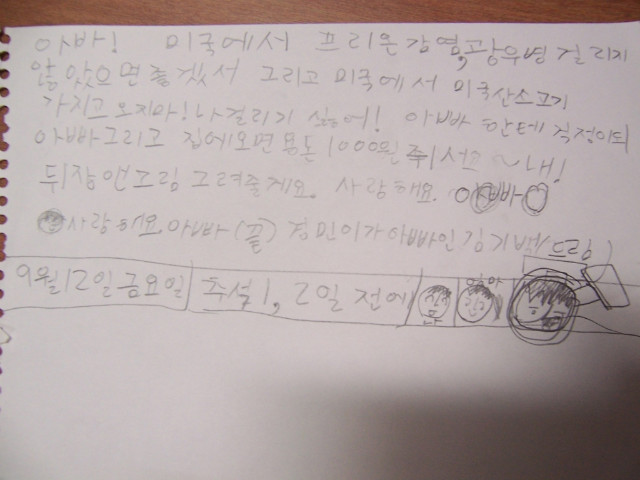 아바! 미국에서 프리온감염,광우병 걸리지
않았으면좋겠서 그리고 미국에서 미국산소고기
가지고 오지마! 나걸리기 싫어! 아빠 한테 걱정이되
아빠그리고 집에오면 용돈 1000원 줘서~내!
뒤장앤그림 그려줄게요. 사랑해요. 아빠
사랑해요 아빠 (끝) 경민이가아빠인김기백(드림)
9월12일금요일 추석1, 2일 전에